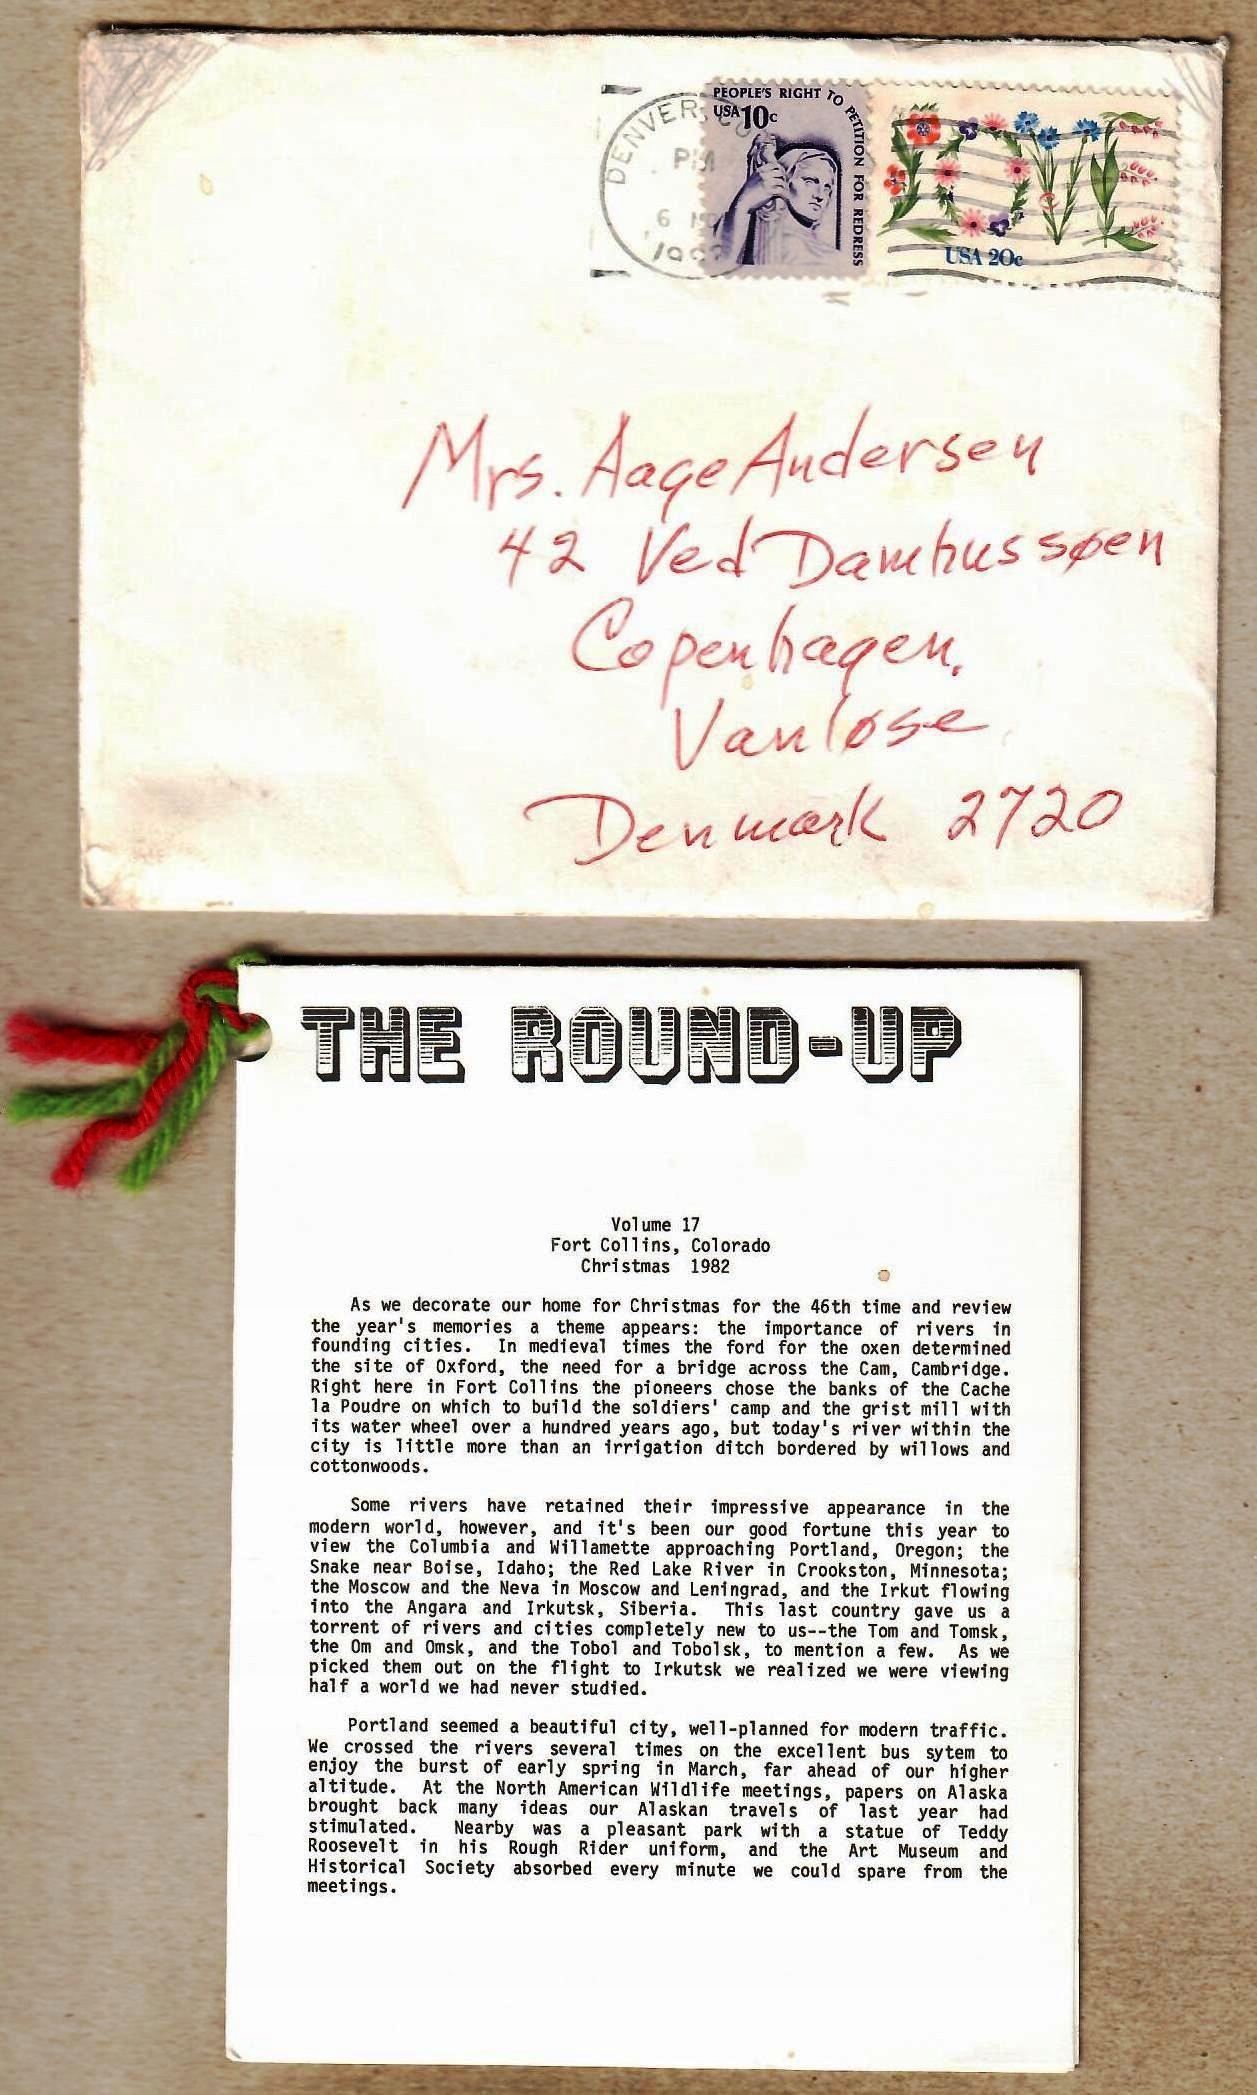 DENVER, CO
PM
6
PEOPLE'S RIGHT TO PETITION FOR REDRESS
USA 10c
LOVE
USA 20c
Mrs. Aage Andersen
42 Ved Damhussøen
Copenhagen,
Vanløse
Denmark 2720
THE ROUND-UP
Volume 17
Fort Collins, Colorado
Christmas 1982
As we decorate our home for Christmas for the 46th time and review
the year's memories a theme appears: the importance of rivers in
founding cities. In medieval times the ford for the oxen determined
the site of Oxford, the need for a bridge across the Cam, Cambridge.
Right here in Fort Collins the pioneers chose the banks of the Cache
la Poudre on which to build the soldiers' camp and the grist mill with
its water wheel over a hundred years ago, but today's river within the
city is little more than an irrigation ditch bordered by willows and
cottonwoods.
Some rivers have retained their impressive appearance in the
modern world, however, and it's been our good fortune this year to
view the Columbia and Willamette approaching Portland, Oregon; the
Snake near Boise, Idaho; the Red Lake River in Crookston, Minnesota;
the Moscow and the Neva in Moscow and Leningrad, and the Irkut flowing
into the Angara and Irkutsk, Siberia. This last country gave us a
torrent of rivers and cities completely new to us--the Tom and Tomsk,
the Om and Omsk, and the Tobol and Tobolsk, to mention a few. As we
picked them out on the flight to Irkutsk we realized we were viewing
half a world we had never studied.
Portland seemed a beautiful city, well-planned for modern traffic.
We crossed the rivers several times on the excellent bus sytem to
enjoy the burst of early spring in March, far ahead of our higher
altitude. At the North American Wildlife meetings, papers on Alaska
brought back many ideas our Alaskan travels of last year had
stimulated. Nearby was a pleasant park with a statue of Teddy
Roosevelt in his Rough Rider uniform, and the Art Museum and
Historical Society absorbed every minute we could spare from the
meetings.